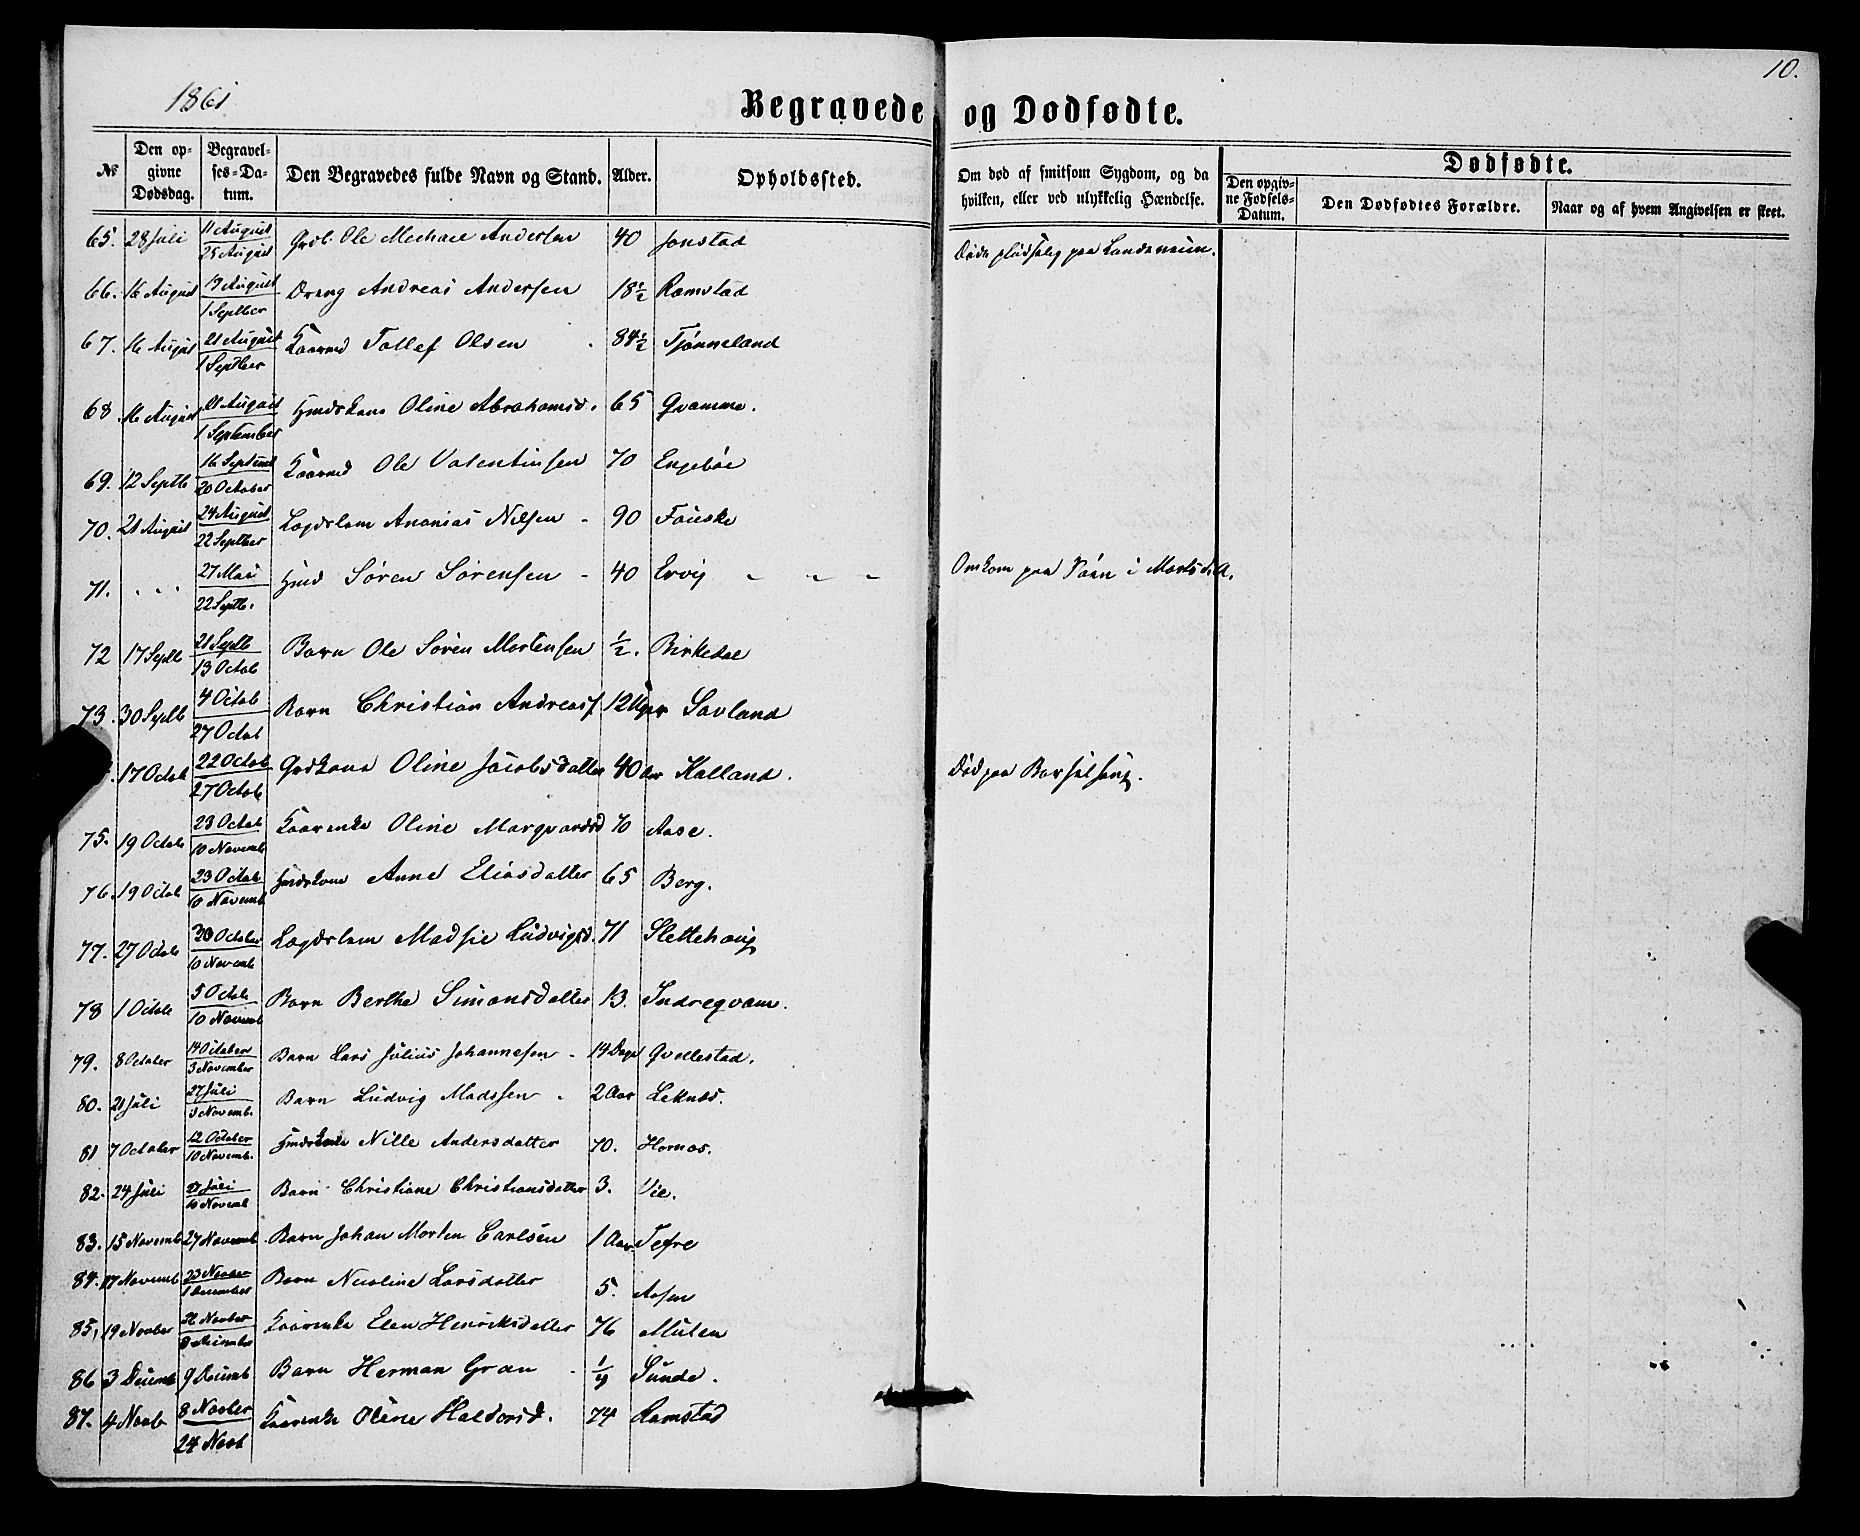 1861
10.
Begravede og Dødfødte.
№ Den opgivne Dødsdag. Begravelses-Datum. Den Begravedes fulde Navn og Stand. Alder. Opholdssted. Om død af smitsom Sygdom, og da hvilken, eller ved ulykkelig Hændelse. Dødfødte. Den opgivne Fødsels-Datum. Den Dødfødtes Forældre. Naar og af hvem Angivelsen er skeet.
65. 28 Juli 11 August 25 August Ole Michael Andersen 40 Jonstad Døde pludselig paa
66. 16 August 19 August 1 Septber Dreng Andreas Andersen 18½ Ramstad
67. 16 August 21 August 1 Septber Kaarmd Tollef Olsen 84½ Tjønneland
68. 16 August 21 August 1 September Hmdskone Oline Abrahamsd. 65 Qvamme.
69. 12 Septb 16 Septemb 20 October Kaarmd Ole Valentinsen 70 Engebøe
70. 21 August 24 August 22 Septber Lægdslem Ananias Nilsen 90 Fauske
71. 27 Mai 22 Septb. Hmd Søren Sørensen 40 Ervig Omkom paa Søen i Marts d. A.
72 17 Septb 21 Septb 13 Octob Barn Ole Søren Mortensen ½. Birkedal
73. 30 Septb 4 Octob 27 Octob Barn Christian Andreass 12 Uger Savland
17 Octob 22 Octob 27 Octob Gdkone Oline Jacobsdatter 40 Aar Kalland. Død paa Barselseng.
75. 19 Octob 23 Octob 10 Novemb Kaarenke Oline Marqvardsd 70 Aase.
76. 19 Octob 23 Octob 10 Novemb Hmdskone Anne Eliasdatter 65 Berg.
77. 27 Octob 30 October 10 Novemb Lægdslem Madsie Ludvigsd. 71 Slettehaug
78 1 Octob 5 Octob 10 Novemb Barn Berthe Simonsdatter 13. Indreqvam.
79. 8 October 14 October 3 November Barn Lars Julius Johannesen 14 Dage Qvellestad.
80. 21 Juli 27 Juli 3 Novemb. Barn Ludvig Madssen 2 Aar Leknæs.
81 7 October 12 October 10 Novemb. Hmdskone Nille Andersdatter 70. Hornæs.
82. 24 Juli 27 Juli 10 Novemb Barn Christiane Christiansdatter 3. Vie.
83. 15 Novemb 27 Novemb Barn Johan Morten Carlsen 1 Aar Tefre
84. 17 Novemb 23 Novber 1 December Barn Nicoline Larsdatter 5. Aasen
85, 19 Novber 26 Novber 8 December Kaarenke Elen Henriksdatter 76 Mulen
86 3 Decemb 9 Decemb Barn Herman Gran Sunde.
87. 4 Novb 8 Novber 24 Novb Kaarenke Oline Haldorsd. 74 Ramstad